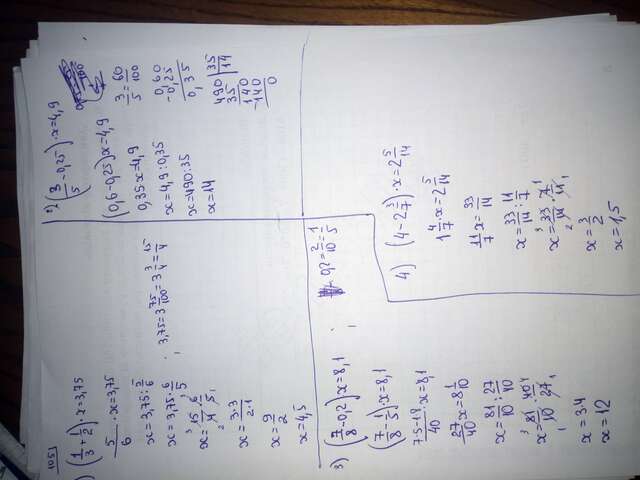 105
(1/3+1/2)·x=3,75
5/6·x=3,75
x=3,75:5/6
x=3,75·6/5
x=15/4·6/5
x=3·3/2·1
x=9/2
x=4,5
3,75=3 75/100=3 3/4=15/4
2) (3/5-0,25)·x=4,9
(0,6-0,25)x=4,9
0,35x=4,9
x=4,9:0,35
x=490:35
x=14
3/5=60/100
0,60
-0,25
0,35
490|35
35 |14
140
-140
0
3) (7/8-0,2)x=8,1
0,2=2/10=1/5
(7/8-1/5)x=8,1
7·5-1·8/40·x=8,1
27/40x=8 1/10
x=81/10:27/40
x=81/10·40/27
x=3·4
x=12
4) (4-2 3/7)·x=2 5/14
1 4/7·x=2 5/14
11/7x=33/14
x=33/14:11/7
x=33/14·7/11
x=3/2
x=1,5